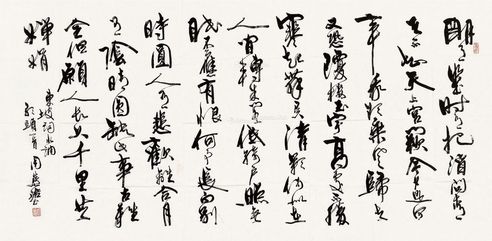 明月幾時有把酒問青
天不知天上宮闕今夕是何
年我欲乘風歸去
又恐瓊樓玉宇高處不勝
寒起舞弄清影何似在
人間轉朱閣低綺戶照無
眠不應有恨何事長向別
時圓人有悲歡離合月
有陰晴圓缺此事古難
全但願人長久千里共
嬋娟
東坡詞水調
歌頭一首